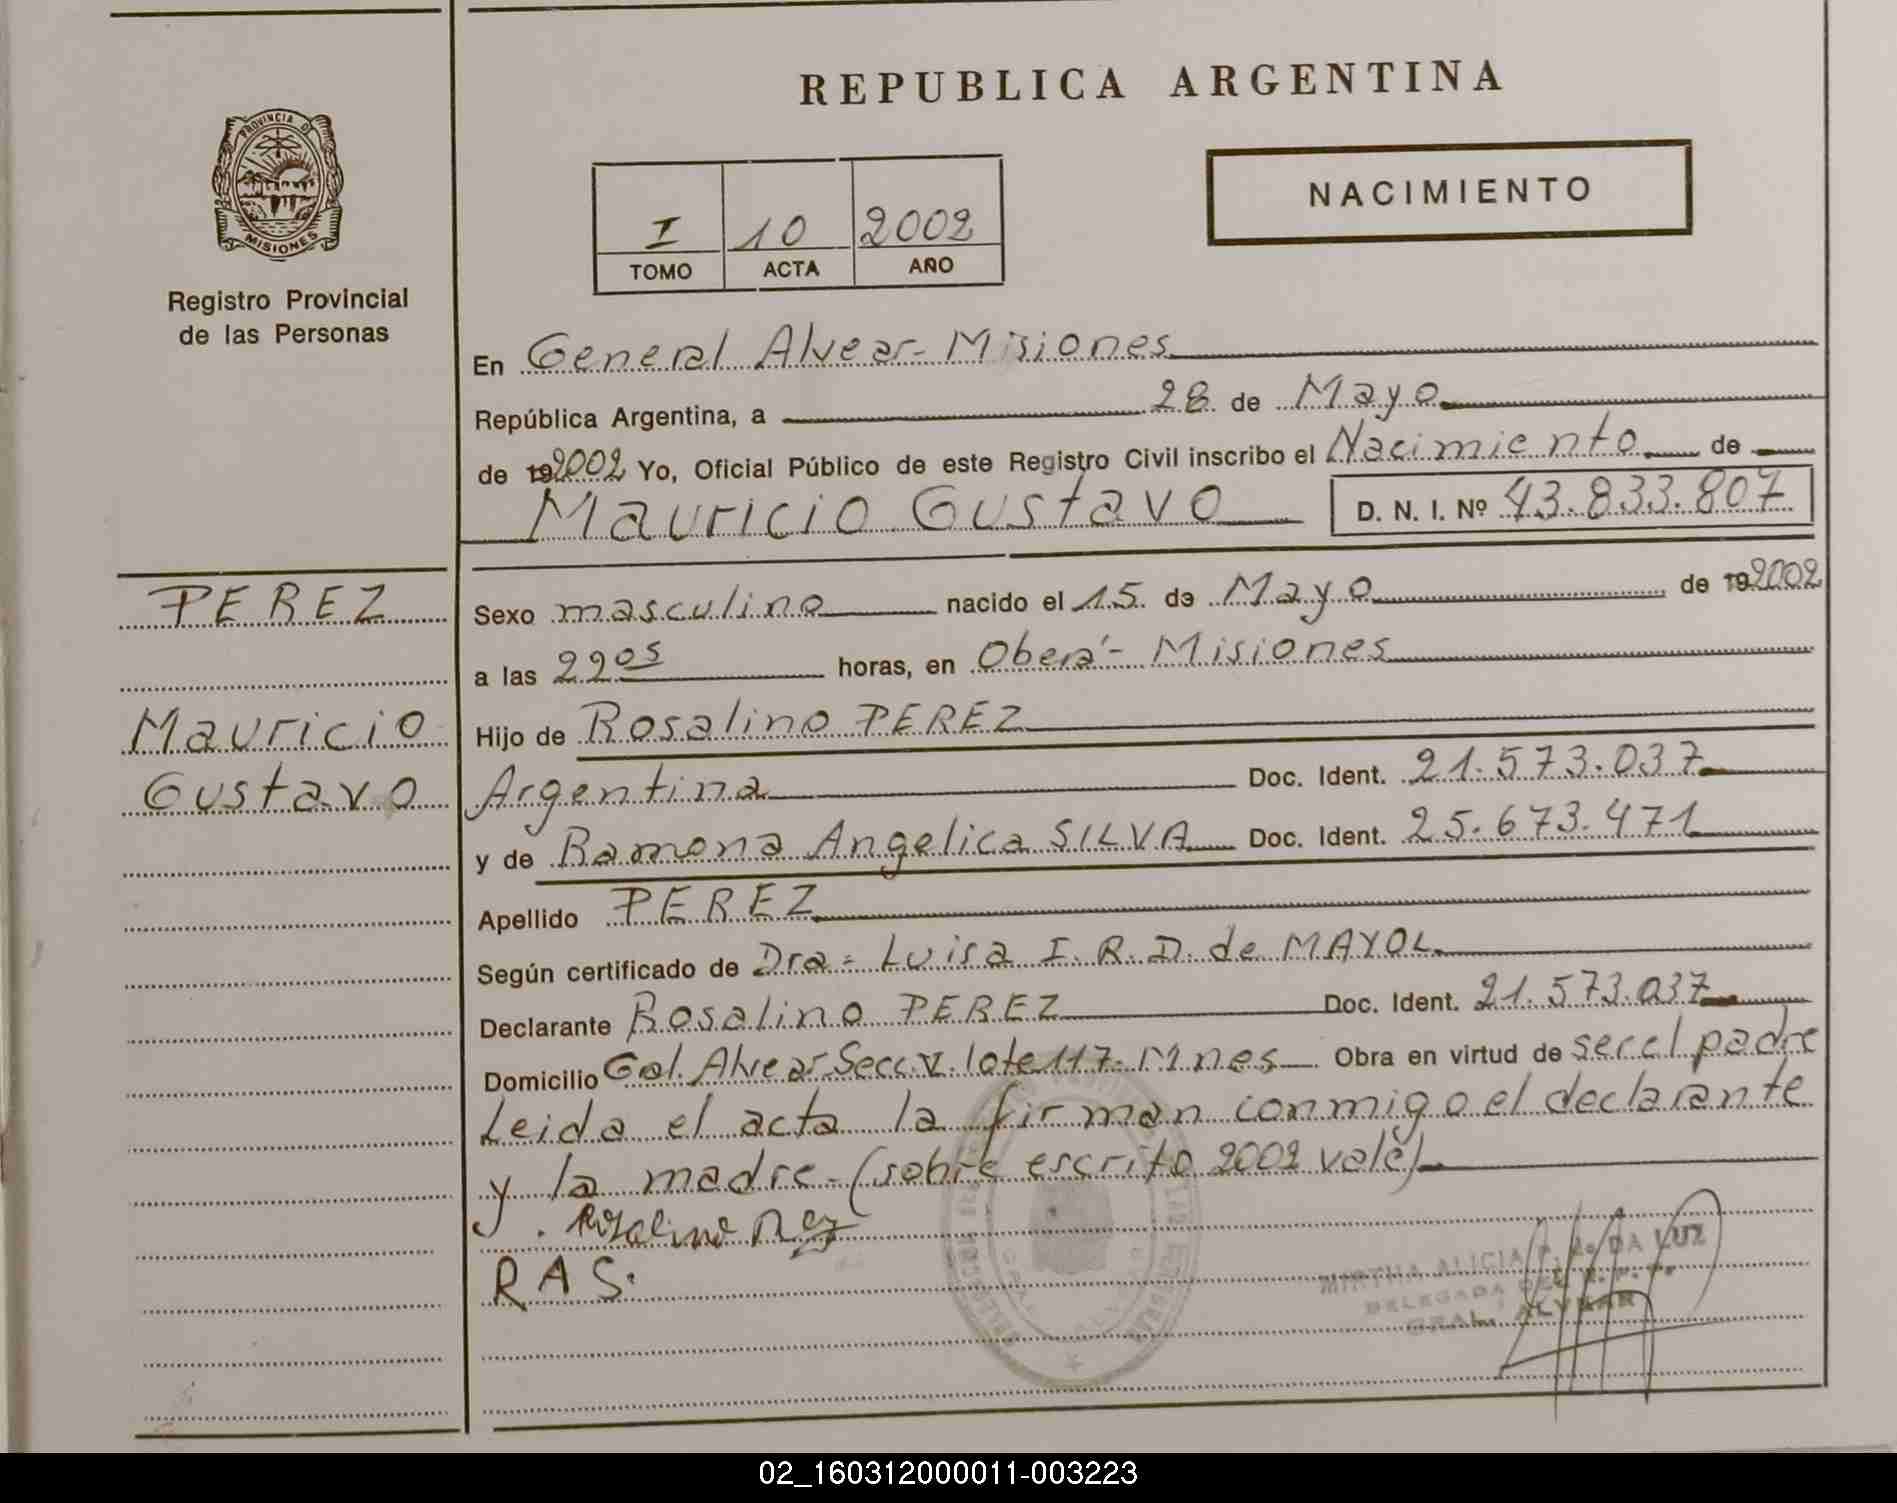 REPUBLICA ARGENTINA
PROVINCIA DE
MISIONES
Registro Provincial
de las Personas
NACIMIENTO
I 10 2002
TOMO ACTA AÑO
En General Alvear - Misiones
República Argentina, a 28 de Mayo
de 192002 Yo, Oficial Público de este Registro Civil inscribo el Nacimiento de
Mauricio Gustavo D. N. I. Nº 43.833.807
PEREZ
Mauricio
Gustavo
Sexo masculino nacido el 15 de Mayo de 192002
a las 22 05 horas, en Oberá - Misiones
Hijo de Rosalino PEREZ
Argentina Doc. Ident. 21.573.037
y de Ramona Angelica SILVA Doc. Ident. 25.673.471
Apellido PEREZ
Según certificado de Dra = Luisa I. R. D. de MAYOL
Declarante Rosalino PEREZ Doc. Ident. 21.573.037
Domicilio Gal. Alvear Secc. V. lote 117. Mnes Obra en virtud de ser el padre
Leida el acta la firman conmigo el declarante
y la madre - (sobre escrito 2002 vale)
Rosalino
RAS.
MIRTHA ALICIA DA LUZ
DELEGADA DEL R. P. P.
GRAL. ALVEAR
02_160312000011-003223